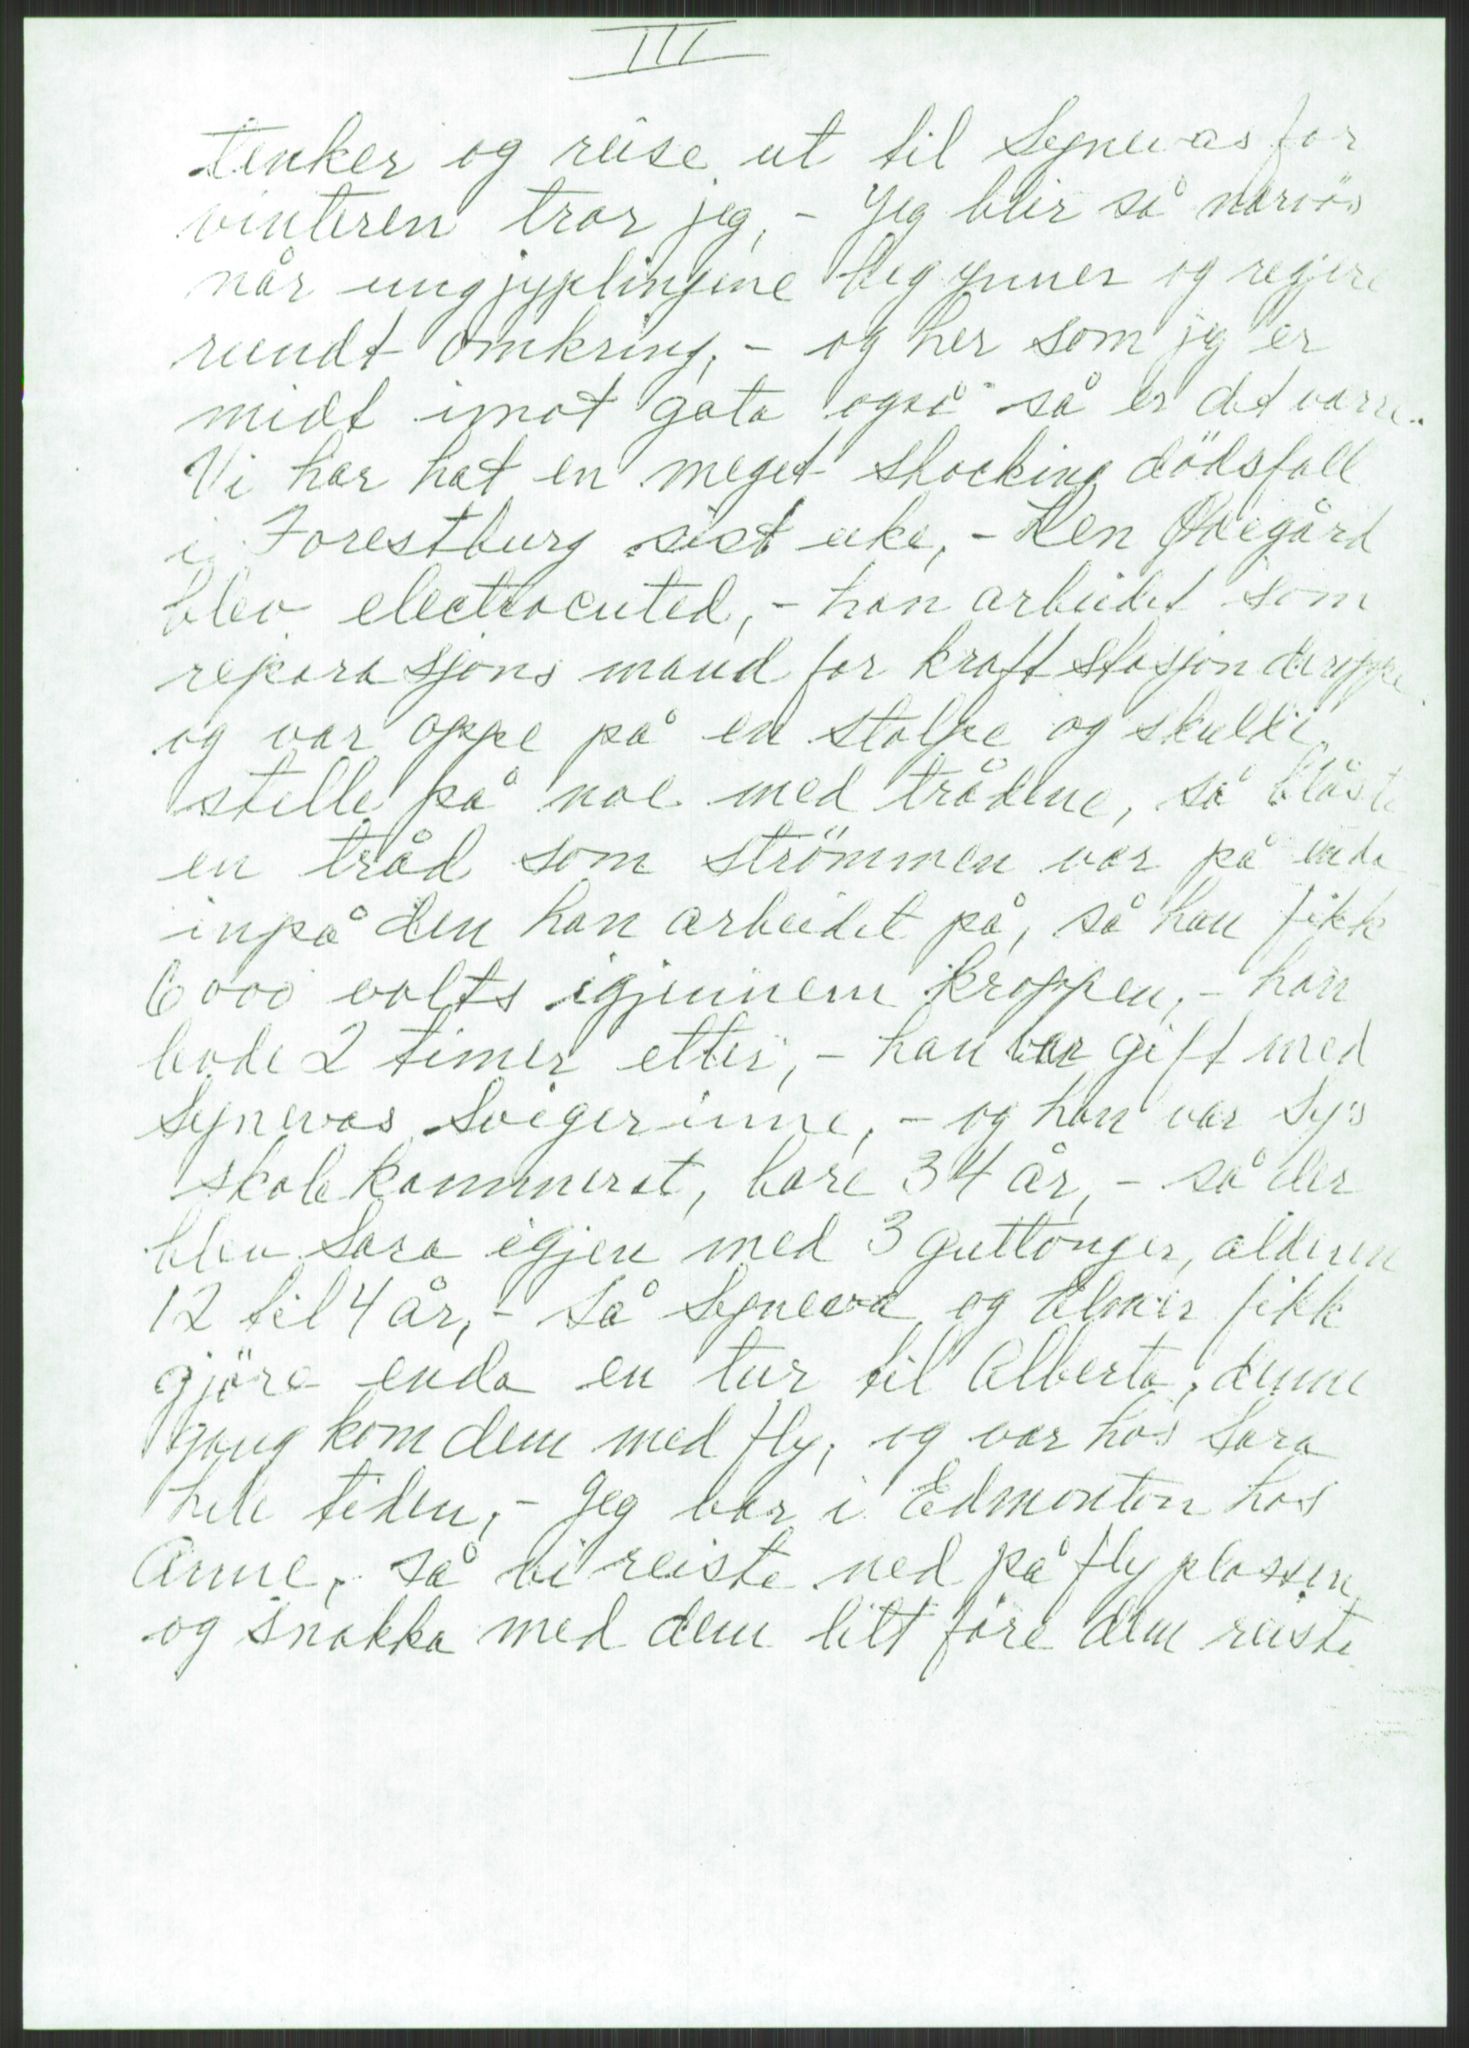 III
tenker og reise ut til Synevas for
vinteren tror jeg, - Jeg blir så narvös
når ungjyplingene begynner og regjere
rundt omkring, - og her som jeg er
midt imot gata også så er det varre.
Vi har hat en meget shocking dödsfall
i Forestburg sist uke, - Len Øvegård
blev electrocuted, - han arbeidet som
reparasjons mand for kraft stasjon deroppe
og var oppe på en stolpe og skulde
stelle på noe med trådene, så blåste
en tråd som strömmen var på enda
inpå den han arbeidet på, så han fikk
6000 volts igjennem kroppen, - han
levde 2 timer etter, - han var gift med
Synevas Svigerinne, - og han var Sy's
skolekammerat, bare 34 år, - så der
blev Sara igjen med 3 guttonger, alderen
12 til 4 år, - Så Syneva og Elmer fikk
gjöre enda en tur til Alberta, denne
gang kom dem med fly, og var hos Sara
hele tiden, - Jeg var i Edmonton hos
Anne, så vi reiste ned på flyplassen
og snakka med dem litt före dem reiste